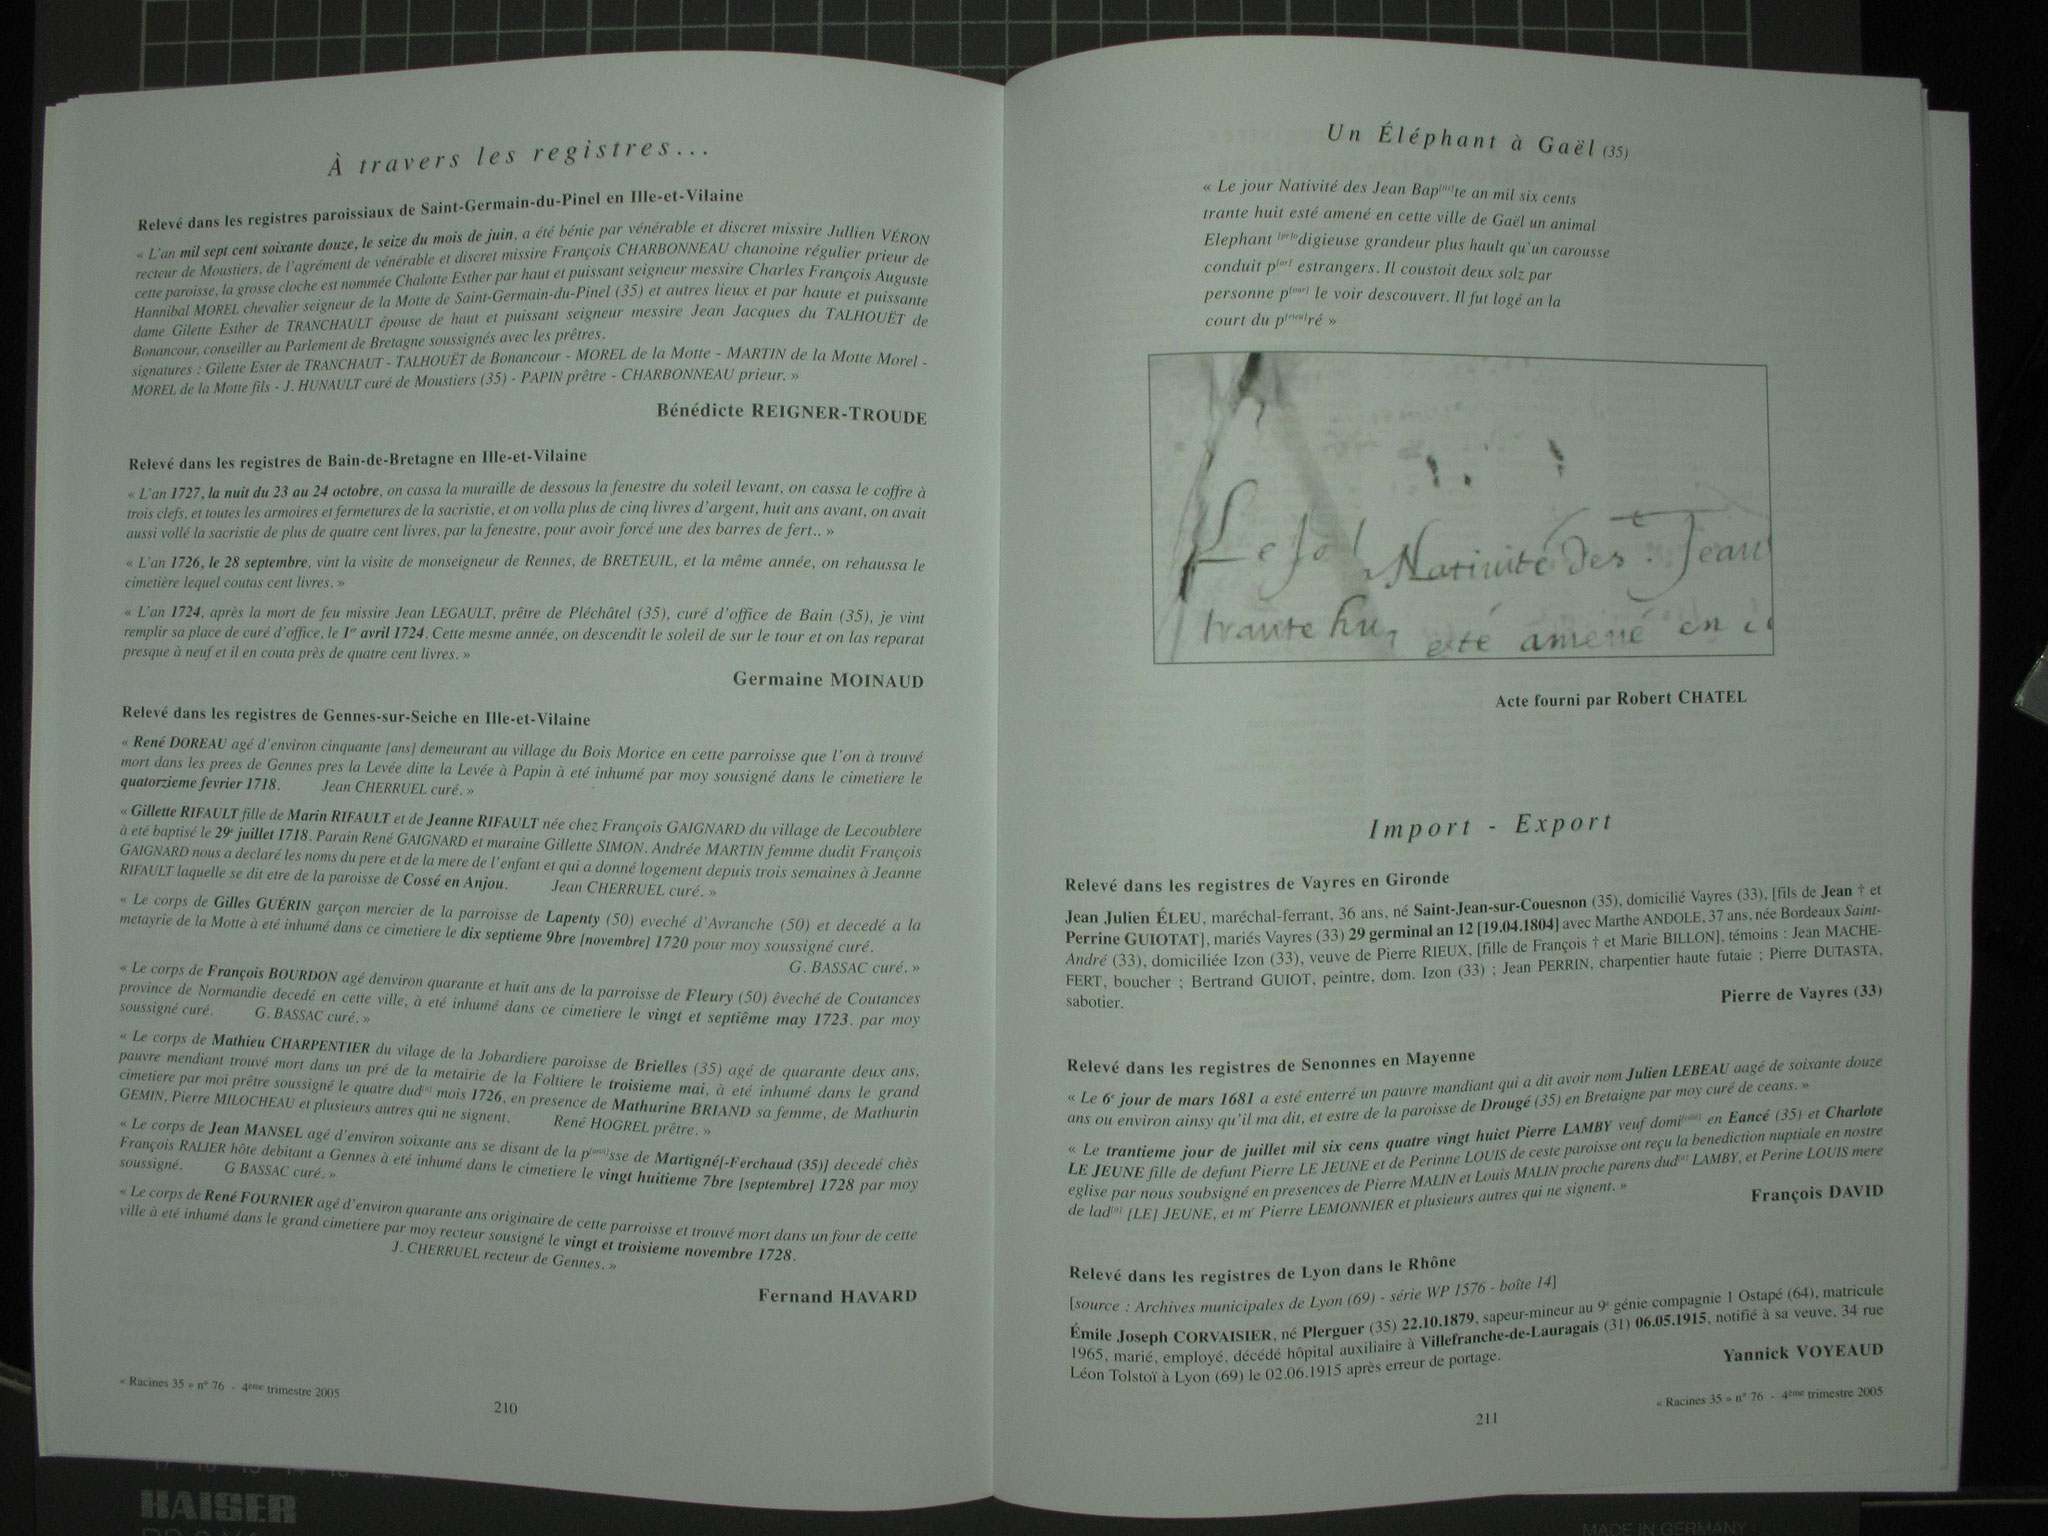 À travers les registres...
Relevé dans les registres paroissiaux de Saint-Germain-du-Pinel en Ille-et-Vilaine
« L'an mil sept cent soixante douze, le seize du mois de juin, a été bénie par vénérable et discret missire Jullien VÉRON
recteur de Moustiers, de l'agrément de vénérable et discret missire François CHARBONNEAU chanoine régulier prieur de
cette paroisse, la grosse cloche est nommée Chalotte Esther par haut et puissant seigneur messire Charles François Auguste
Hannibal MOREL chevalier seigneur de la Motte de Saint-Germain-du-Pinel (35) et autres lieux et par haute et puissante
dame Gilette Esther de TRANCHAULT épouse de haut et puissant seigneur messire Jean Jacques du TALHOUËT de
Bonancour, conseiller au Parlement de Bretagne soussignés avec les prêtres.
signatures : Gilette Ester de TRANCHAUT - TALHOUËT de Bonancour - MOREL de la Motte - MARTIN de la Motte Morel -
MOREL de la Motte fils - J. HUNAULT curé de Moustiers (35) - PAPIN prêtre - CHARBONNEAU prieur. »
Bénédicte REIGNER-TROUDE
Relevé dans les registres de Bain-de-Bretagne en Ille-et-Vilaine
« L'an 1727, la nuit du 23 au 24 octobre, on cassa la muraille de dessous la fenestre du soleil levant, on cassa le coffre à
trois clefs, et toutes les armoires et fermetures de la sacristie, et on volla plus de cinq livres d'argent, huit ans avant, on avait
aussi vollé la sacristie de plus de quatre cent livres, par la fenestre, pour avoir forcé une des barres de fert.. »
« L'an 1726, le 28 septembre, vint la visite de monseigneur de Rennes, de BRETEUIL, et la même année, on rehaussa le
cimetière lequel coutas cent livres. »
« L'an 1724, après la mort de feu missire Jean LEGAULT, prêtre de Pléchâtel (35), curé d'office de Bain (35), je vint
remplir sa place de curé d'office, le 1er avril 1724. Cette mesme année, on descendit le soleil de sur le tour et on las reparat
presque à neuf et il en couta près de quatre cent livres. »
Germaine MOINAUD
Relevé dans les registres de Gennes-sur-Seiche en Ille-et-Vilaine
« René DOREAU agé d'environ cinquante [ans] demeurant au village du Bois Morice en cette parroisse que l'on à trouvé
mort dans les prees de Gennes pres la Levée ditte la Levée à Papin à eté inhumé par moy sousigné dans le cimetiere le
quatorzieme fevrier 1718. Jean CHERRUEL curé. »
« Gillette RIFAULT fille de Marin RIFAULT et de Jeanne RIFAULT née chez François GAIGNARD du village de Lecoublere
à eté baptisé le 29e juillet 1718. Parain René GAIGNARD et maraine Gillette SIMON. Andrée MARTIN femme dudit François
GAIGNARD nous a declaré les noms du pere et de la mere de l'enfant et qui a donné logement depuis trois semaines à Jeanne
RIFAULT laquelle se dit etre de la paroisse de Cossé en Anjou. Jean CHERRUEL curé. »
« Le corps de Gilles GUÉRIN garçon mercier de la parroisse de Lapenty (50) eveché d'Avranche (50) et decedé a la
metayrie de la Motte à eté inhumé dans ce cimetiere le dix septieme 9bre [novembre] 1720 pour moy soussigné curé.
G. BASSAC curé. »
« Le corps de François BOURDON agé denviron quarante et huit ans de la parroisse de Fleury (50) êveché de Coutances
province de Normandie decedé en cette ville, à eté inhumé dans ce cimetiere le vingt et septiême may 1723. par moy
soussigné curé. G. BASSAC curé. »
« Le corps de Mathieu CHARPENTIER du vilage de la Jobardiere paroisse de Brielles (35) agé de quarante deux ans,
pauvre mendiant trouvé mort dans un pré de la metairie de la Foltiere le troisieme mai, à eté inhumé dans le grand
cimetiere par moi prêtre soussigné le quatre dud[it] mois 1726, en presence de Mathurine BRIAND sa femme, de Mathurin
GEMIN, Pierre MILOCHEAU et plusieurs autres qui ne signent. René HOGREL prêtre. »
« Le corps de Jean MANSEL agé d'environ soixante ans se disant de la p[aroi]sse de Martigné[-Ferchaud (35)] decedé chès
François RALIER hôte debitant a Gennes à eté inhumé dans le cimetiere le vingt huitieme 7bre [septembre] 1728 par moy
soussigné. G BASSAC curé. »
« Le corps de René FOURNIER agé d'environ quarante ans originaire de cette parroisse et trouvé mort dans un four de cette
ville à eté inhumé dans le grand cimetiere par moy recteur sousigné le vingt et troisieme novembre 1728.
J. CHERRUEL recteur de Gennes. »
Fernand HAVARD
« Racines 35 » n° 76 - 4ème trimestre 2005
210
Un Éléphant à Gaël (35)
« Le jour Nativité des Jean Bap[tis]te an mil six cents
trante huit esté amené en cette ville de Gaël un animal
Elephant [pr]odigieuse grandeur plus hault qu'un carousse
conduit p[ar] estrangers. Il coustoit deux solz par
personne p[our] le voir descouvert. Il fut logé an la
court du p[rieu]ré »
Le jo
Nativité des Jean
trante hu
eté amené en
Acte fourni par Robert CHATEL
Import - Export
Relevé dans les registres de Vayres en Gironde
Jean Julien ÉLEU, maréchal-ferrant, 36 ans, né Saint-Jean-sur-Couesnon (35), domicilié Vayres (33), [fils de Jean † et
Perrine GUIOTAT], mariés Vayres (33) 29 germinal an 12 [19.04.1804] avec Marthe ANDOLE, 37 ans, née Bordeaux Saint-
André (33), domiciliée Izon (33), veuve de Pierre RIEUX, [fille de François † et Marie BILLON], témoins : Jean MACHE-
FERT, boucher ; Bertrand GUIOT, peintre, dom. Izon (33) ; Jean PERRIN, charpentier haute futaie ; Pierre DUTASTA,
sabotier.
Pierre de Vayres (33)
Relevé dans les registres de Senonnes en Mayenne
« Le 6e jour de mars 1681 a esté enterré un pauvre mandiant qui a dit avoir nom Julien LEBEAU aagé de soixante douze
ans ou environ ainsy qu'il ma dit, et estre de la paroisse de Drougé (35) en Bretaigne par moy curé de ceans. »
« Le trantieme jour de juillet mil six cens quatre vingt huict Pierre LAMBY veuf domi[cilié] en Eancé (35) et Charlote
LE JEUNE fille de defunt Pierre LE JEUNE et de Perinne LOUIS de ceste paroisse ont reçu la benediction nuptiale en nostre
eglise par nous soubsigné en presences de Pierre MALIN et Louis MALIN proche parens dud[it] LAMBY, et Perine LOUIS mere
de lad[it] [LE] JEUNE, et mr Pierre LEMONNIER et plusieurs autres qui ne signent. »
François DAVID
Relevé dans les registres de Lyon dans le Rhône
[source : Archives municipales de Lyon (69) - série WP 1576 - boîte 14]
Émile Joseph CORVAISIER, né Plerguer (35) 22.10.1879, sapeur-mineur au 9e génie compagnie 1 Ostapé (64), matricule
1965, marié, employé, décédé hôpital auxiliaire à Villefranche-de-Lauragais (31) 06.05.1915, notifié à sa veuve, 34 rue
Léon Tolstoï à Lyon (69) le 02.06.1915 après erreur de portage.
Yannick VOYEAUD
« Racines 35 » n° 76 - 4ème trimestre 2005
211
KAISER
MADE IN GERMANY